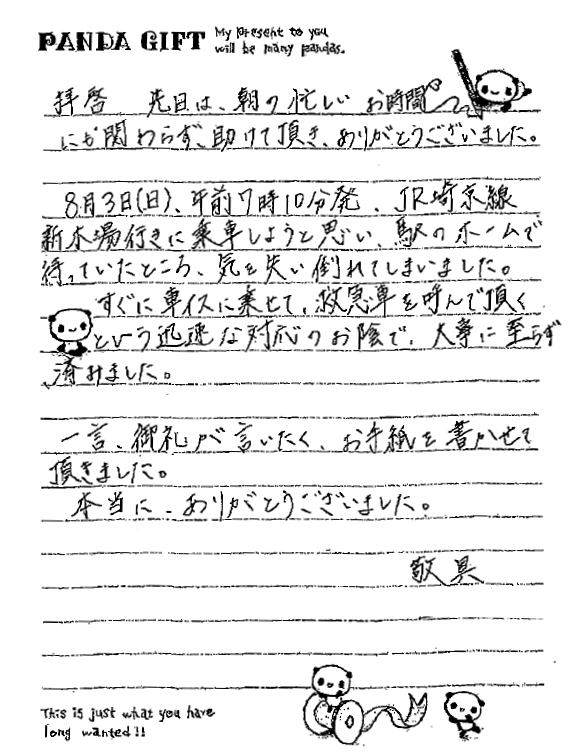 PANDA GIFT
My present to you
will be many pandas.
拝啓　先日は、朝の忙しいお時間
にか関わらず、助けて頂き、ありがとうございました。
8月3日(日)、午前7時10分発、JR埼京線
新木場行きに乗車しようと思い、駅のホームで
待っていたところ、気を失い倒れてしまいました。
すぐに車イスに乗せて、救急車を呼んで頂く
という迅速な対応のお陰で、大事に至らず
済みました。
一言、御礼が言いたく、お手紙を書かせて
頂きました。
本当に、ありがとうございました。
敬具
This is just what you have
long wanted!!